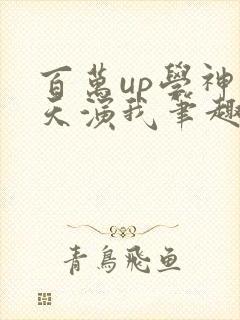 百萬up學神
天演我筆趣
青鳥飛魚